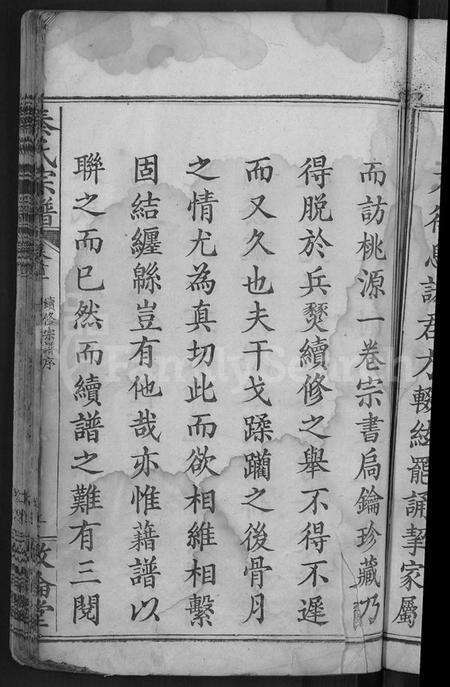 君才輟絃罷誦挈家屬
而訪桃源一卷宗書局鑰珍藏乃
得脫於兵燹續修之舉不得不遲
而又久也夫干戈蹂躪之後骨月
之情尤為真切此而欲相維相繫
固結纏緜豈有他哉亦惟藉譜以
聯之而已然而續譜之難有三閱
秦氏宗譜
卷首
續修宗譜序
敘倫堂
FamilySearch